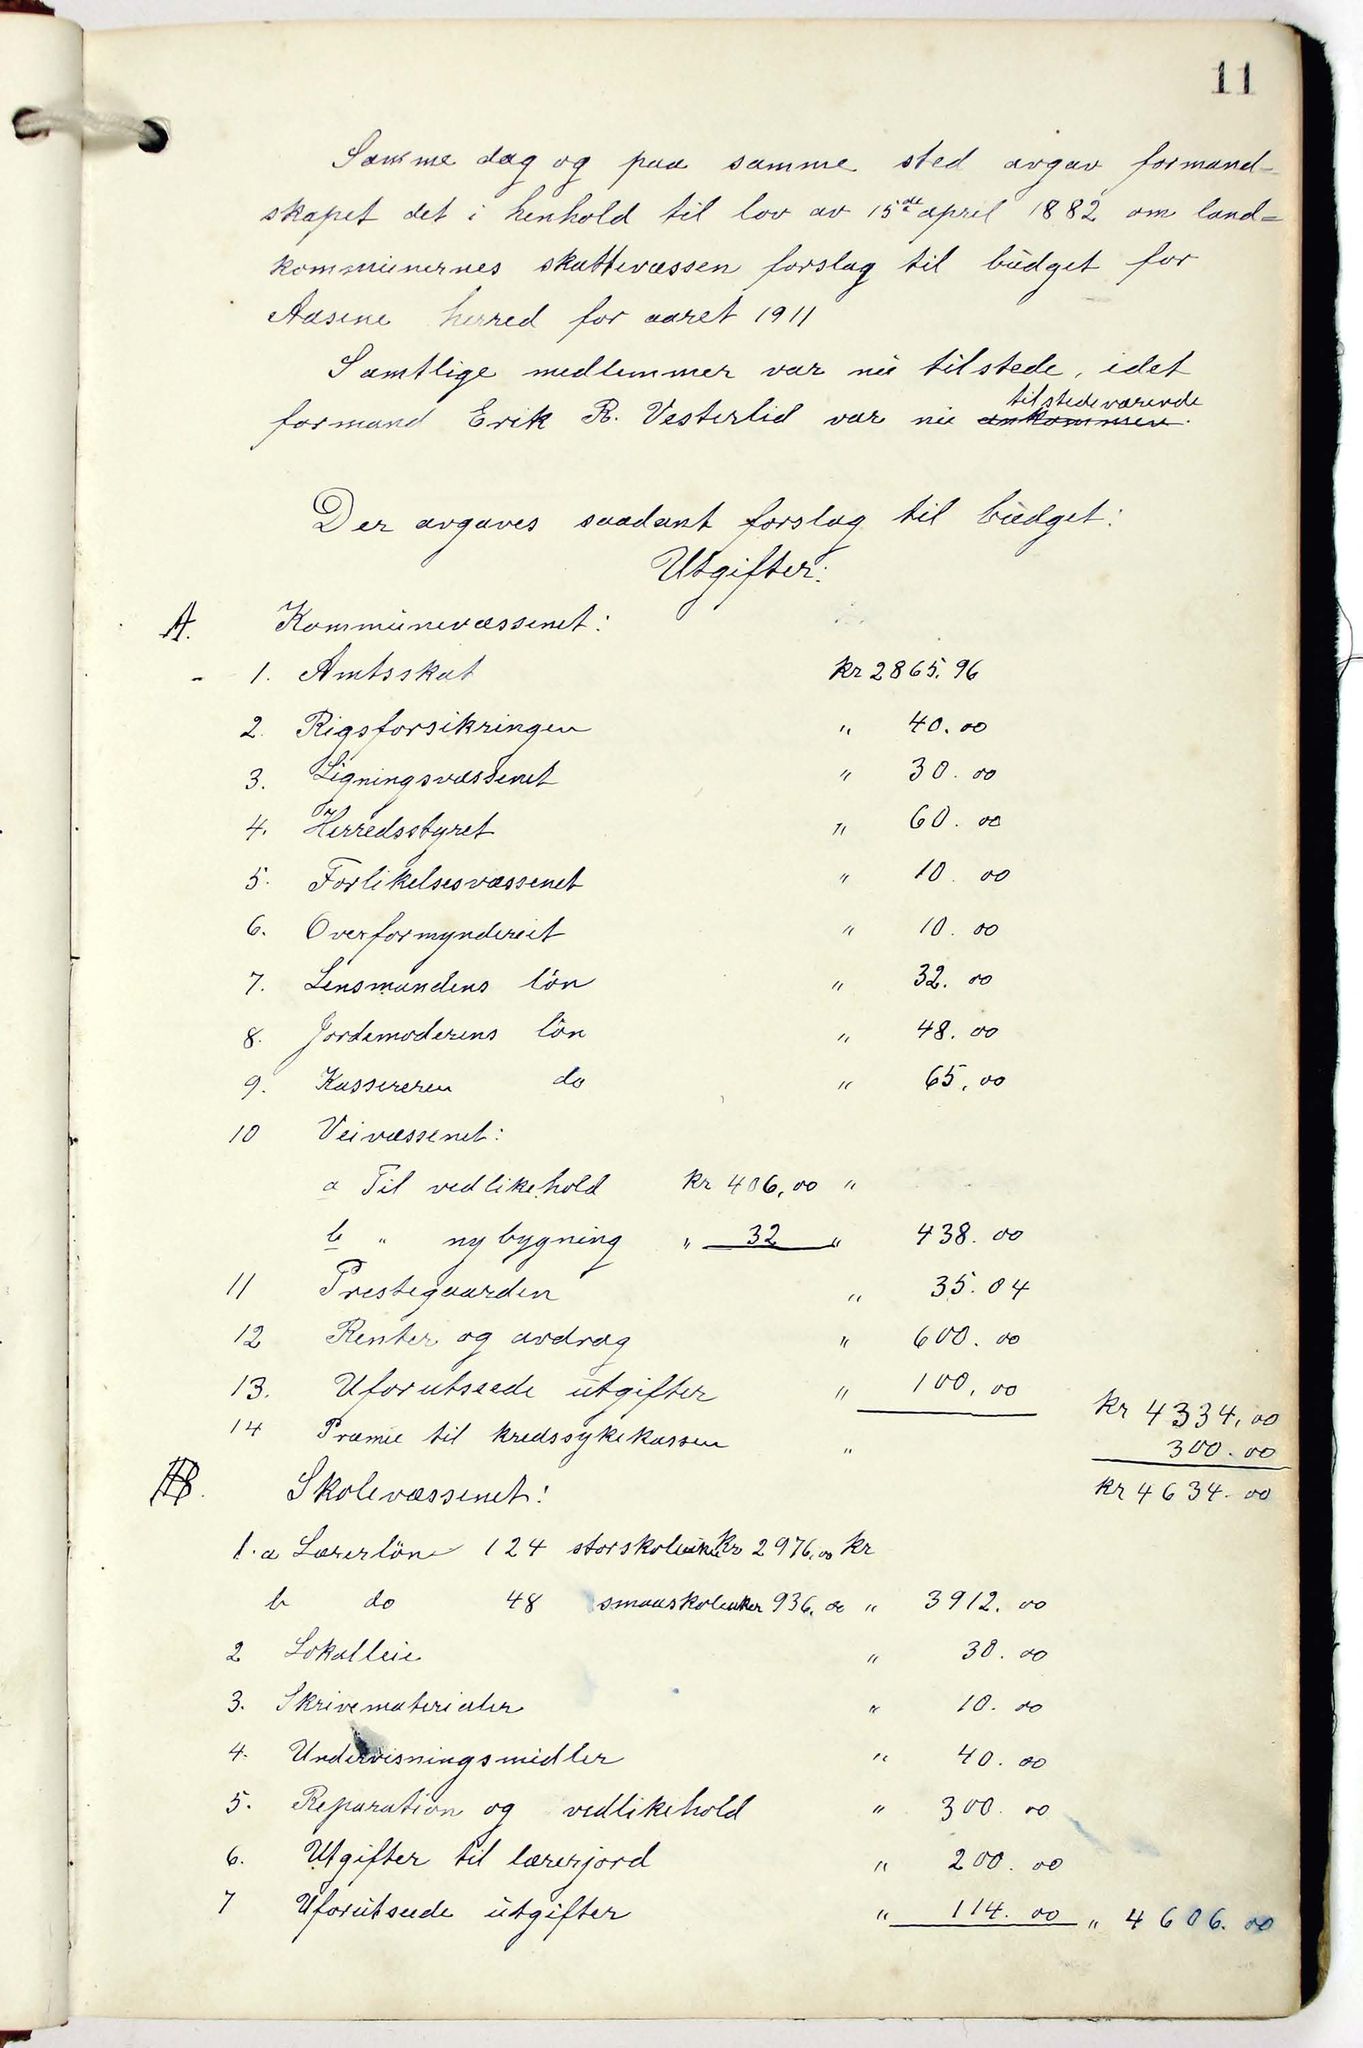 11
Samme dag og paa samme sted avgav formand-
skapet det i henhold til lov av 15de april 1882 om land=
kommunernes skattevæssen forslag til budget for
Aasene herred for aaret 1911
Samtlige medlemmer var nu tilstede, idet
tilstedeværende
formand Erik R. Vesterlid var nu ankommen.
Der avgaves saadant forslag til budget:
Utgifter:
A. Kommunevæssenet:
- 1. Amtsskat kr 2865.96
2. Rigsforsikringen " 40.00
3. Ligningsvæssenet " 30.00
4. Herredsstyret " 60.00
5. Forlikelsesvæssenet " 10.00
6. Overformynderiet " 10.00
7. Lensmandens lön " 32.00
8. Jordemoderens lön " 48.00
9. Kassereren do " 65,00
10 Veivæssenet:
a Til vedlikehold kr 406,00 "
b " nybygning " 32 " 438.00
11 Prestegaarden " 35.04
12 Renter og avdrag " 600.00
13. Uforutseede utgifter " 100,00 kr 4334,00
14 Præmie til kredssykekassen " 300.00
kr 4634.00
B. Skolevæssenet:
1.a Lærerlön 124 storskoleuker kr 2976,00 kr
b do 48 smaaskoleuker 936.00 " 3912.00
2 Lokalleie " 30.00
3. Skrivematerialer " 10.00
4. Undervisningsmidler " 40.00
5. Reparation og vedlikehold " 300.00
6. Utgifter til lærerjord " 200.00
7 Uforutseede utgifter " 114.00 " 4606.00